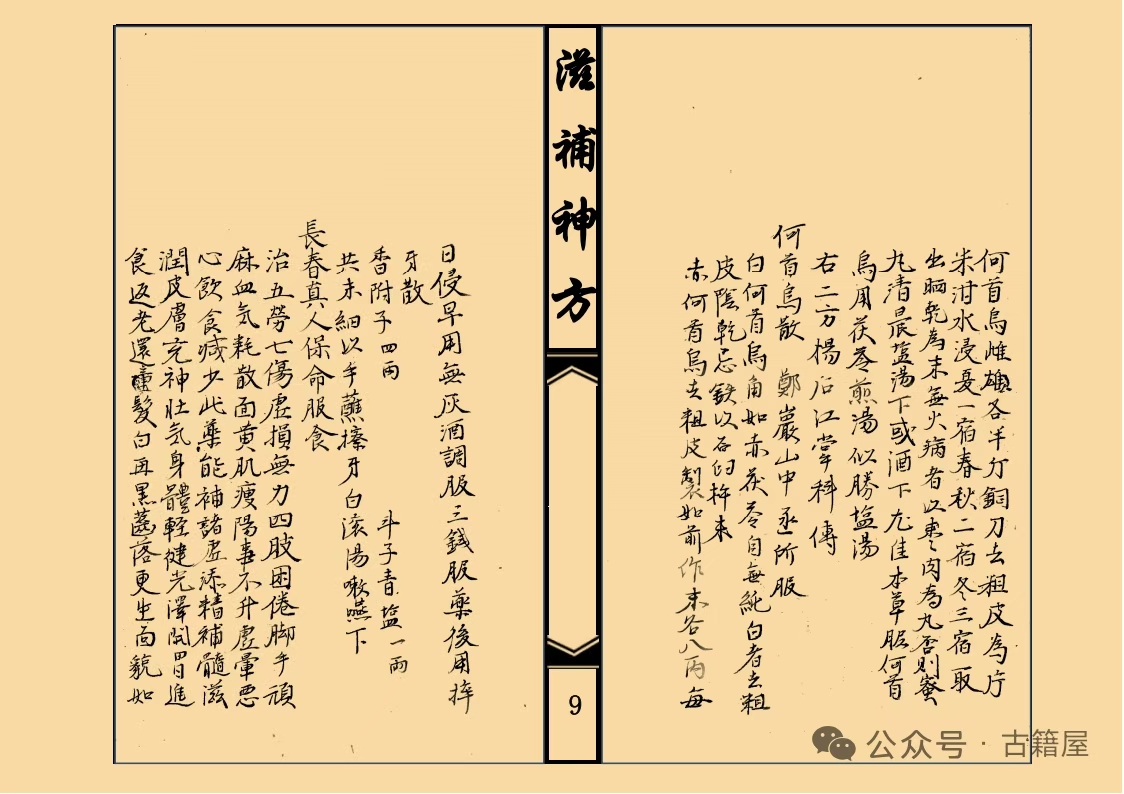 何首烏雌雄各半斤銅刀去粗皮為片
米泔水浸夏一宿春秋二宿冬三宿取
出晒乾為末無火病者以棗肉為丸否則蜜
丸清晨塩湯下或酒下尤佳本草服何首
烏用茯苓煎湯似勝塩湯
右二方楊石江掌科傳
何首烏散 鄭巖山中丞所服
白何首烏角如赤茯苓自無純白者去粗
皮陰乾忌鉄以石臼杵末
赤何首烏去粗皮製如前作末各八両每
滋補神方
9
日侵早用無灰酒調服三錢服藥後用擦
牙散
香附子四両 斗子青塩一両
共末細以手蘸擦牙白滾湯嗽嚥下
長春真人保命服食
治五勞七傷虛損無力四肢困倦脚手頑
麻血気耗散面黄肌瘦陽事不升虛暈悪
心飲食减少此藥能補諸虛添精補髓滋
潤皮膚充神壯気身體輕健光澤開胃進
食返老還童髮白再黑齒落更生面貌如
公众号 · 古籍屋